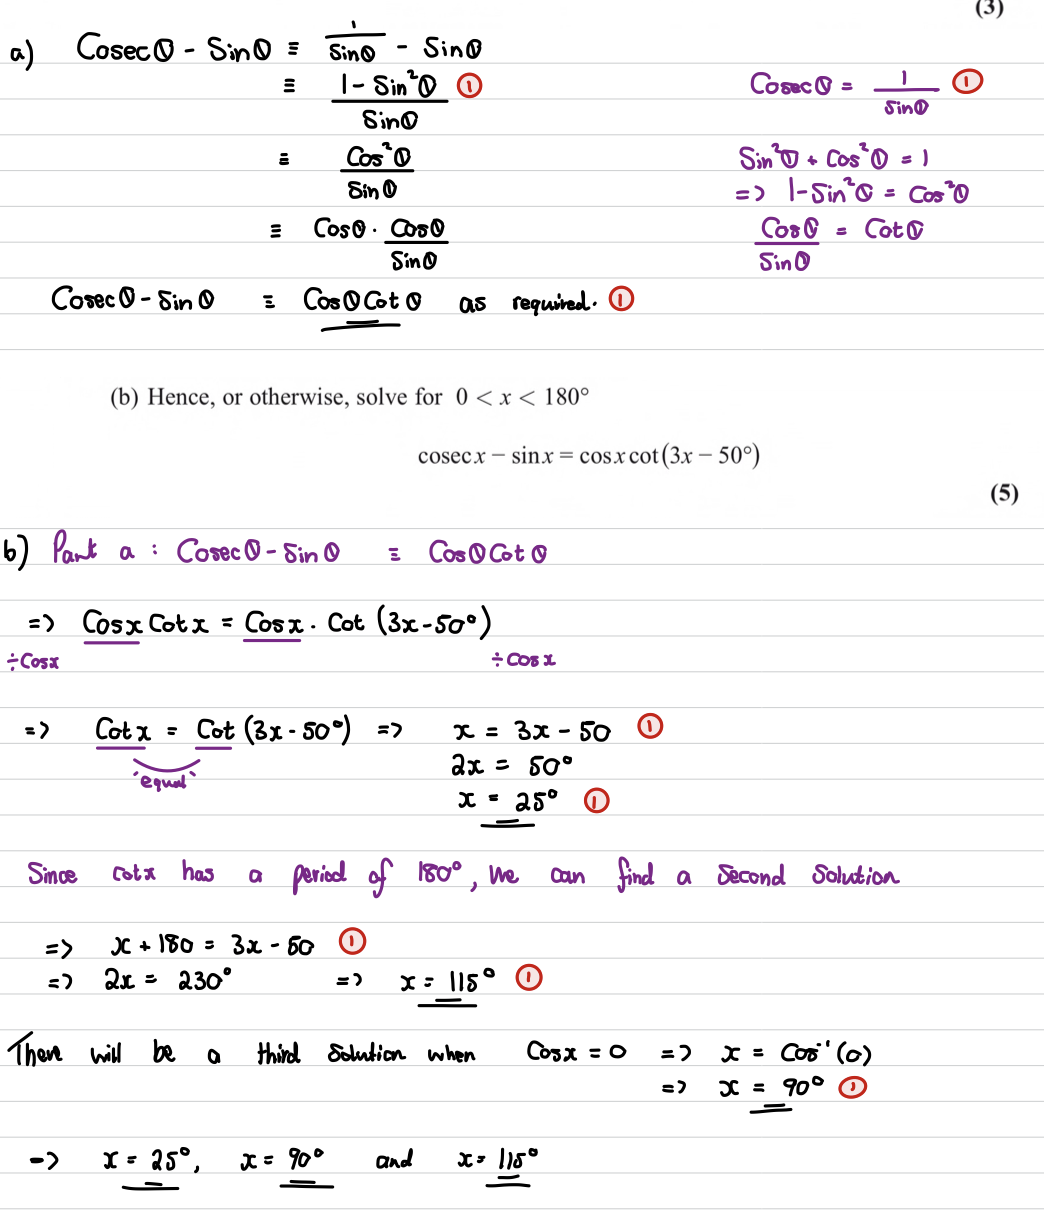 (3)
a) Cosecθ - Sinθ ≡ 1/Sinθ - Sinθ
≡ (1 - Sin²θ)/Sinθ ①
Cosecθ = 1/Sinθ ①
≡ Cos²θ/Sinθ
Sin²θ + Cos²θ = 1
=> 1 - Sin²θ = Cos²θ
≡ Cosθ · Cosθ/Sinθ
Cosθ/Sinθ = Cotθ
Cosecθ - Sinθ ≡ CosθCotθ as required. ①
(b) Hence, or otherwise, solve for 0 < x < 180°
cosec x − sin x = cos x cot(3x − 50°)
(5)
b) Part a : Cosecθ - Sinθ ≡ CosθCotθ
=> Cosx Cotx = Cosx . Cot (3x-50°)
÷Cosx ÷Cosx
=> Cotx = Cot (3x-50°) => x = 3x - 50 ①
'equal'
2x = 50°
x = 25° ①
Since cotx has a period of 180°, we can find a second solution
=> x + 180 = 3x - 50 ①
=> 2x = 230° => x = 115° ①
There will be a third solution when Cosx = 0 => x = Cos⁻¹(0)
=> x = 90° ①
-> x = 25°, x = 90° and x = 115°